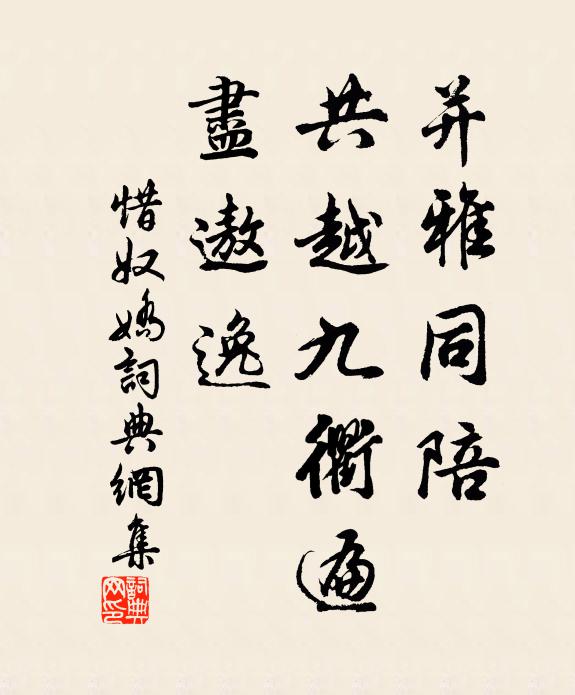 并雅同陪
共越九衢遍
盡遨逸
惜奴嬌詞典網集
詞典網印